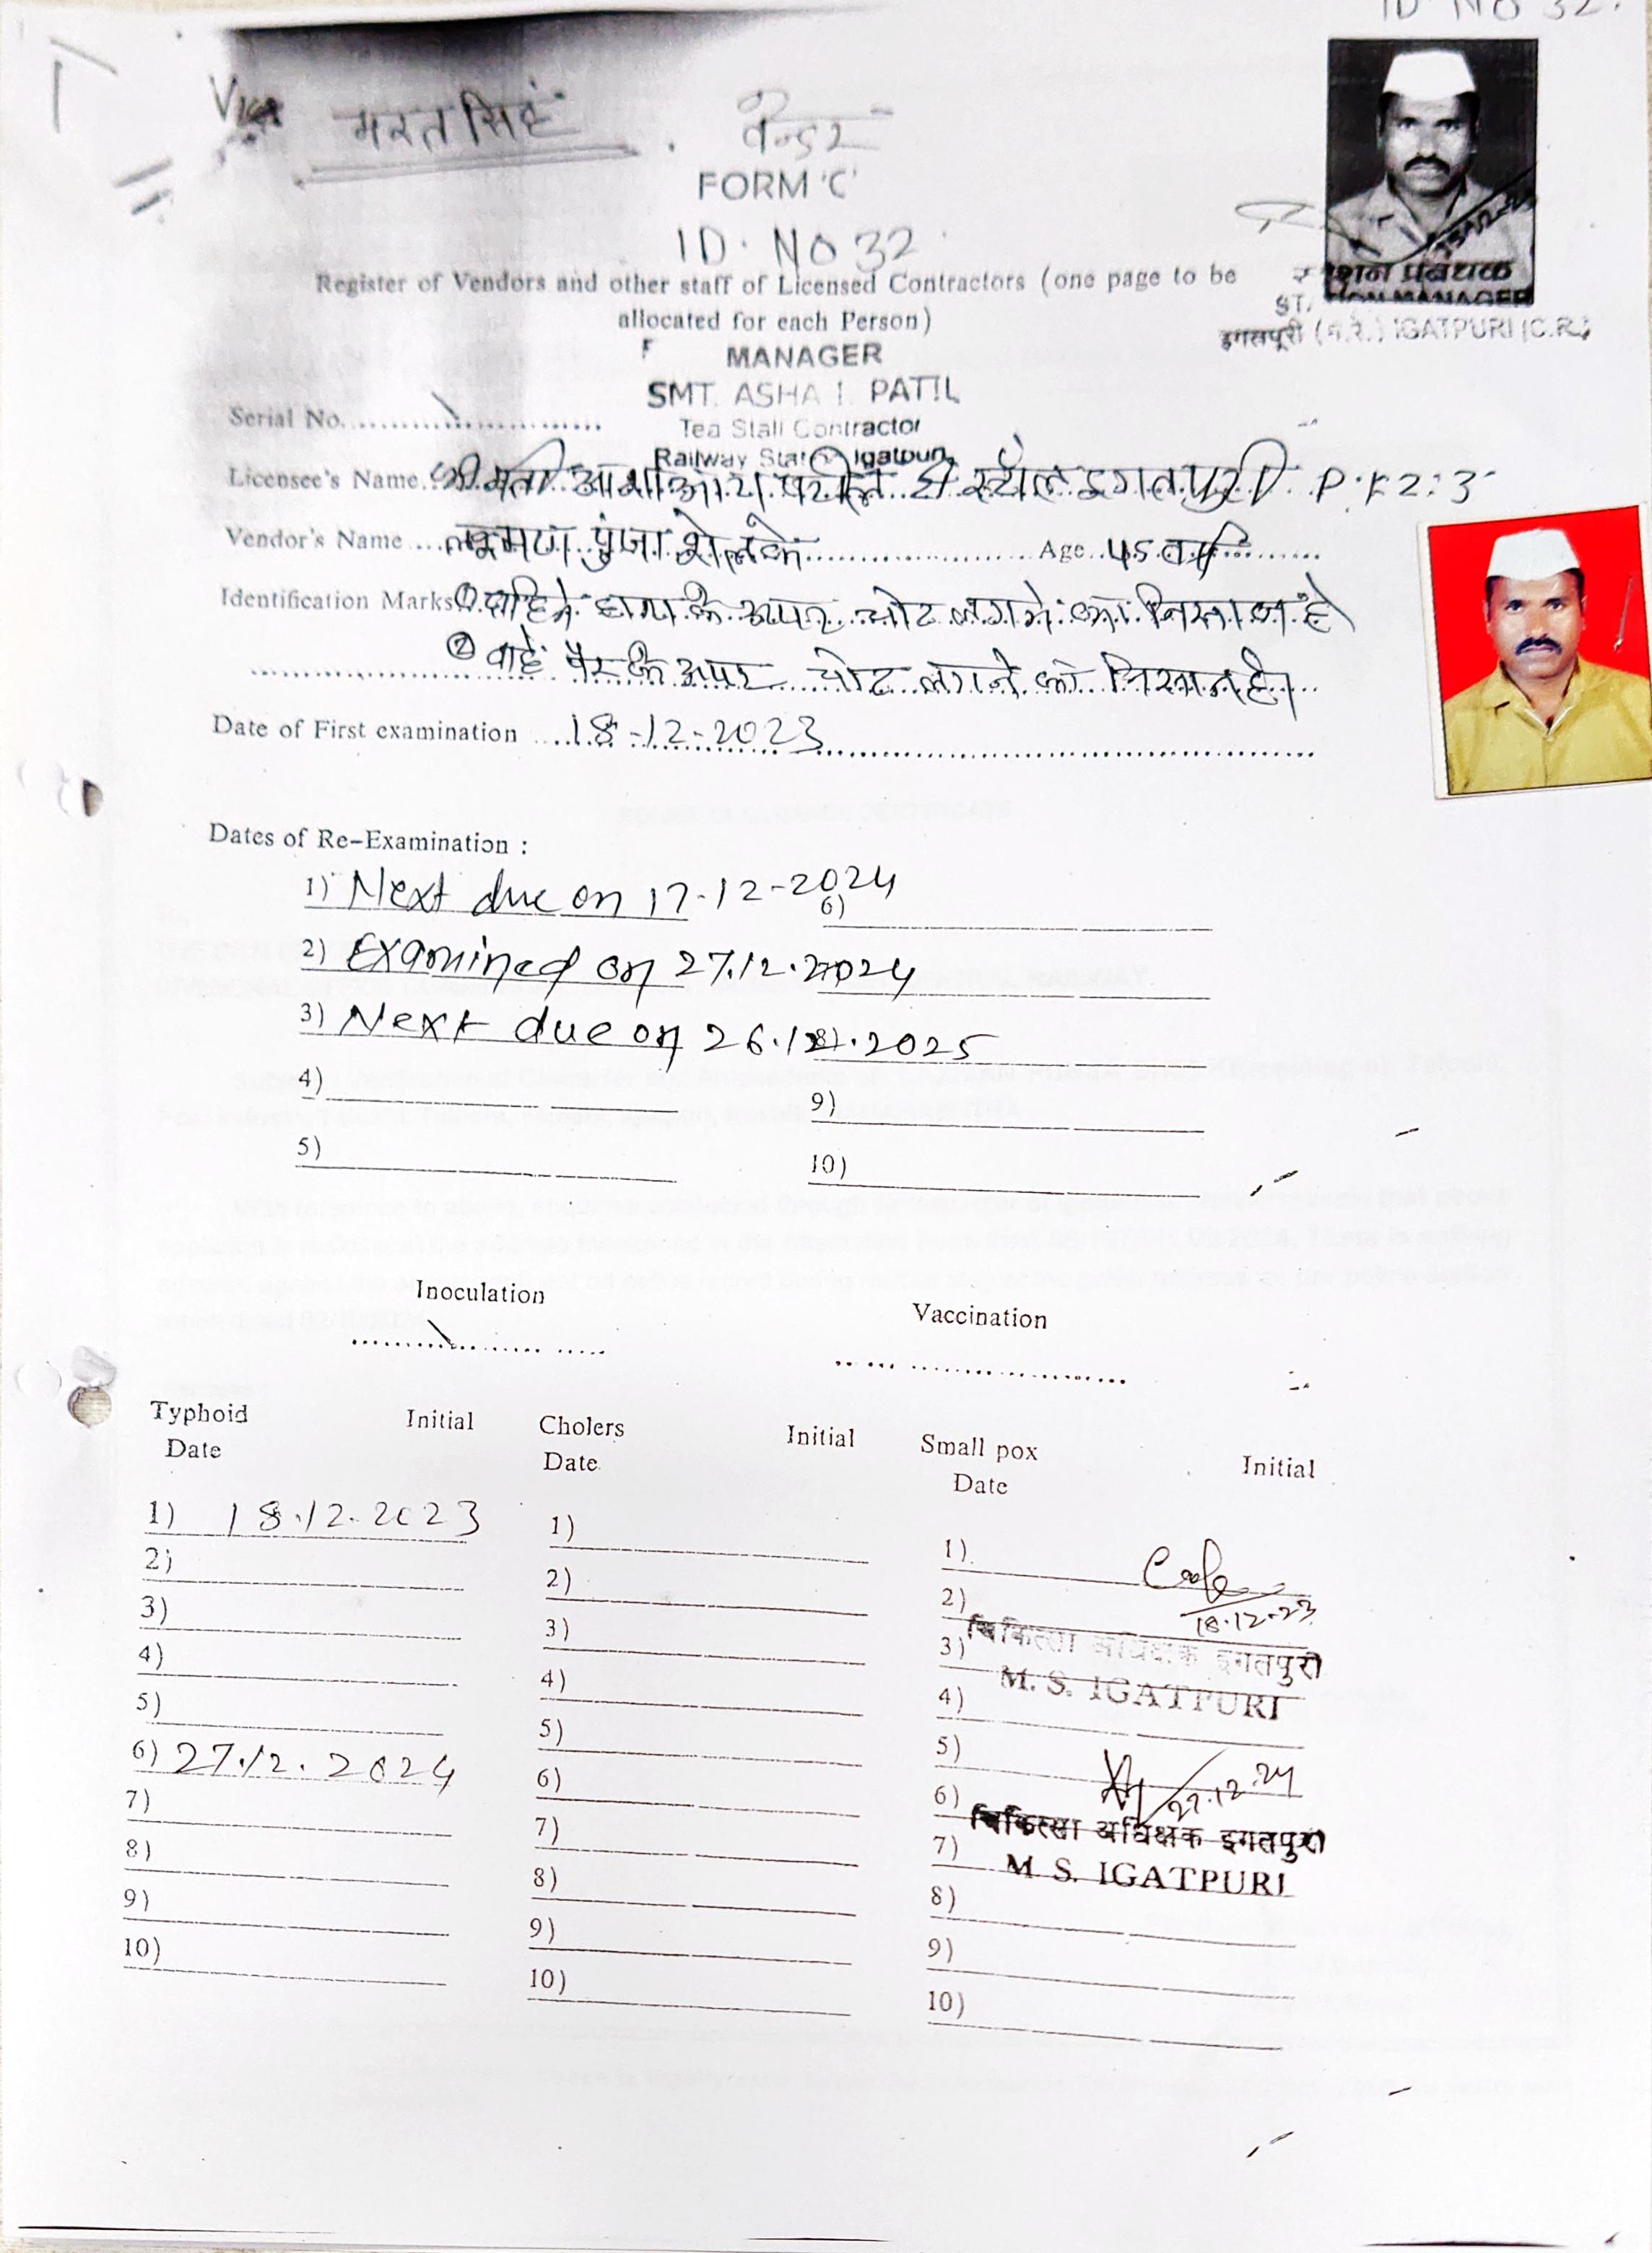 ID NO 32.
भरत सिंह
वेन्डर
FORM 'C'
ID. NO 32
Register of Vendors and other staff of Licensed Contractors (one page to be
allocated for each Person)
STATION MANAGER
इगतपूरी (म.रे.) IGATPURI (C.R.)
MANAGER
SMT. ASHA I. PATIL
Tea Stall Contractor
Railway Station Igatpuri
Serial No.
Licensee's Name श्रीमती आशा आय पाटील टी स्टॉल इगतपुरी P.F. 2:3
Vendor's Name लक्ष्मण पुंजा शेलके Age 45 वर्ष
Identification Marks ① दाहिने हाथ के उपर चोट लगने का निशान है
② बाहे पैर के उपर चोट लगने को निशान है।
Date of First examination 18-12-2023
Dates of Re-Examination :
1) Next due on 17-12-2024
6)
2) Examined on 27.12.2024
3) Next due on 26.12.2025
8)
4)
9)
5)
10)
Inoculation Vaccination
Typhoid Initial Cholers Initial Small pox Initial
Date Date Date
1) 18.12.2023 1) 1)
2) 2) 2) 18.12-23
3) 3) 3) चिकित्सा अधिक्षक इगतपुरी
M. S. IGATPURI
4) 4) 4)
5) 5) 5)
6) 27.12.2024 6) 6) 27.12.24
चिकित्सा अधिक्षक इगतपुरी
7) 7) 7) M. S. IGATPURI
8) 8) 8)
9) 9) 9)
10) 10) 10)